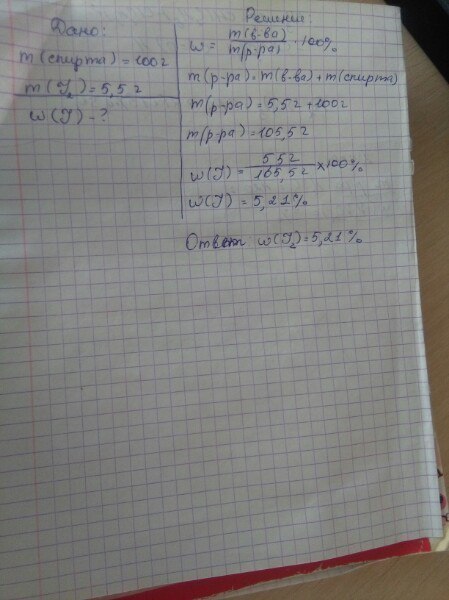 Дано:
m(спирта) = 100г
m(I₂) = 5,5г
w(I) - ?
Решение:
w = m(в-ва) / m(р-ра) · 100%
m(р-ра) = m(в-ва) + m(спирта)
m(р-ра) = 5,5г + 100г
m(р-ра) = 105,5г
w(I) = 5 5г / 105,5г × 100%
w(I) = 5,21%
Ответ w(I₂) = 5,21%